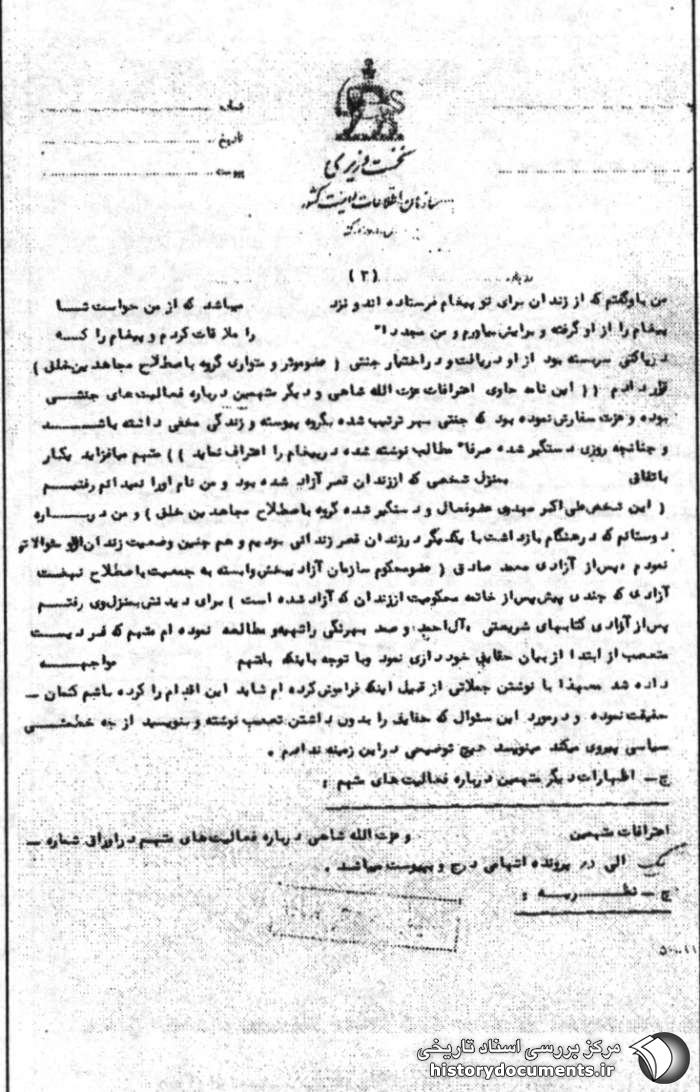 شماره
تاریخ
پیوست
نخست وزیری
سازمان اطلاعات و امنیت کشور
درباره (۲)
من باو گفتم که از زندان برای تو پیغام فرستاده اند و نزد میباشد که از من خواست تا
پیغام را از او گرفته و برایش بیاورم و من مجددا" را ملاقات کردم و پیغام را که
در پاکتی سربسته بود از او دریافت و در اختیار جنتی ( عضو موثر و متواری گروه باصطلاح مجاهدین خلق )
قرار دادم (( این نامه حاوی اعترافات عزت الله شاهی و دیگر متهمین درباره فعالیت های جنتی
بوده و عزت سفارش نموده بود که جنتی بهر ترتیب شده بگروه پیوسته و زندگی مخفی داشته باشد
و چنانچه روزی دستگیر شده صرفا" مطالب نوشته شده در پیغام را اعتراف نماید )) متهم میافزاید یکبار
باتفاق بمنزل شخصی که از زندان قصر آزاد شده بود و من نام او را نمیدانم رفتیم
( این شخص علی اکبر مهدوی عضو فعال و دستگیر شده گروه باصطلاح مجاهدین خلق ) و من درباره
دوستانم که در هنگام بازداشت با یکدیگر در زندان قصر زندانی بودیم و هم چنین وضعیت زندان از او سئوالاتی
نمودم . پس از آزادی محمد صادق ( عضو محکوم سازمان آزادیبخش وابسته به جمعیت باصطلاح نهضت
آزادی که چندی پیش پس از خاتمه محکومیت از زندان آزاد شده است ) برای دیدنش بمنزل وی رفتم
پس از آزادی کتابهای شریعتی ، آل احمد و صمد بهرنگی را تهیه و مطالعه نموده ام متهم که فردیست
متعصب از ابتدا از بیان حقایق خودداری نمود و با توجه باینکه باتهم مواجهه
داده شد معهذا با نوشتن جملاتی از قبیل اینکه فراموش کرده ام شاید این اقدام را کرده باشم کتمان –
حقیقت نموده و در مورد این سئوال که حقایق را بدون داشتن تعصب نوشته و بنویسید از چه خط مشی
سیاسی پیروی میکند مینویسد هیچ توضیحی در این زمینه ندارم .
ج – اظهارات دیگر متهمین درباره فعالیت های متهم :
اعترافات متهمین و عزت الله شاهی درباره فعالیت های متهم در اوراق شماره –
یک الی در پرونده اتهامی درج و پیوست میباشد .
چ – نظریه :
۵۰-۱۱
مرکز بررسی اسناد تاریخی
historydocuments.ir